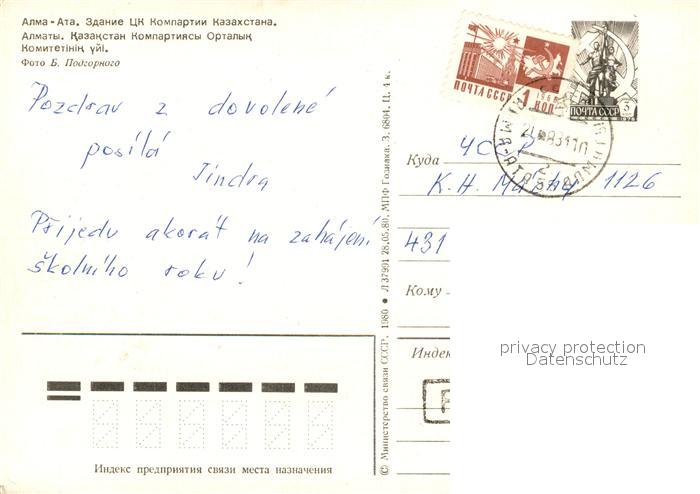 Алма-Ата. Здание ЦК Компартии Казахстана.
Алматы. Қазақстан Компартиясы Орталық
Комитетінің үйі.
Фото Б. Подгорного
Pozdrav z dovolené
posílá
Jindra
Přijedu akorát na zahájení
školního roku!
© Министерство связи СССР, 1980 ● Л 37991 28.05.80. МПФ Гознака. З. 6804. Ц. 4 к.
ПОЧТА СССР 1 КОП
ПОЧТА СССР
Куда ЧССР
К. Н. Máchy 1126
431
Кому
Индек
privacy protection
Datenschutz
Индекс предприятия связи места назначения